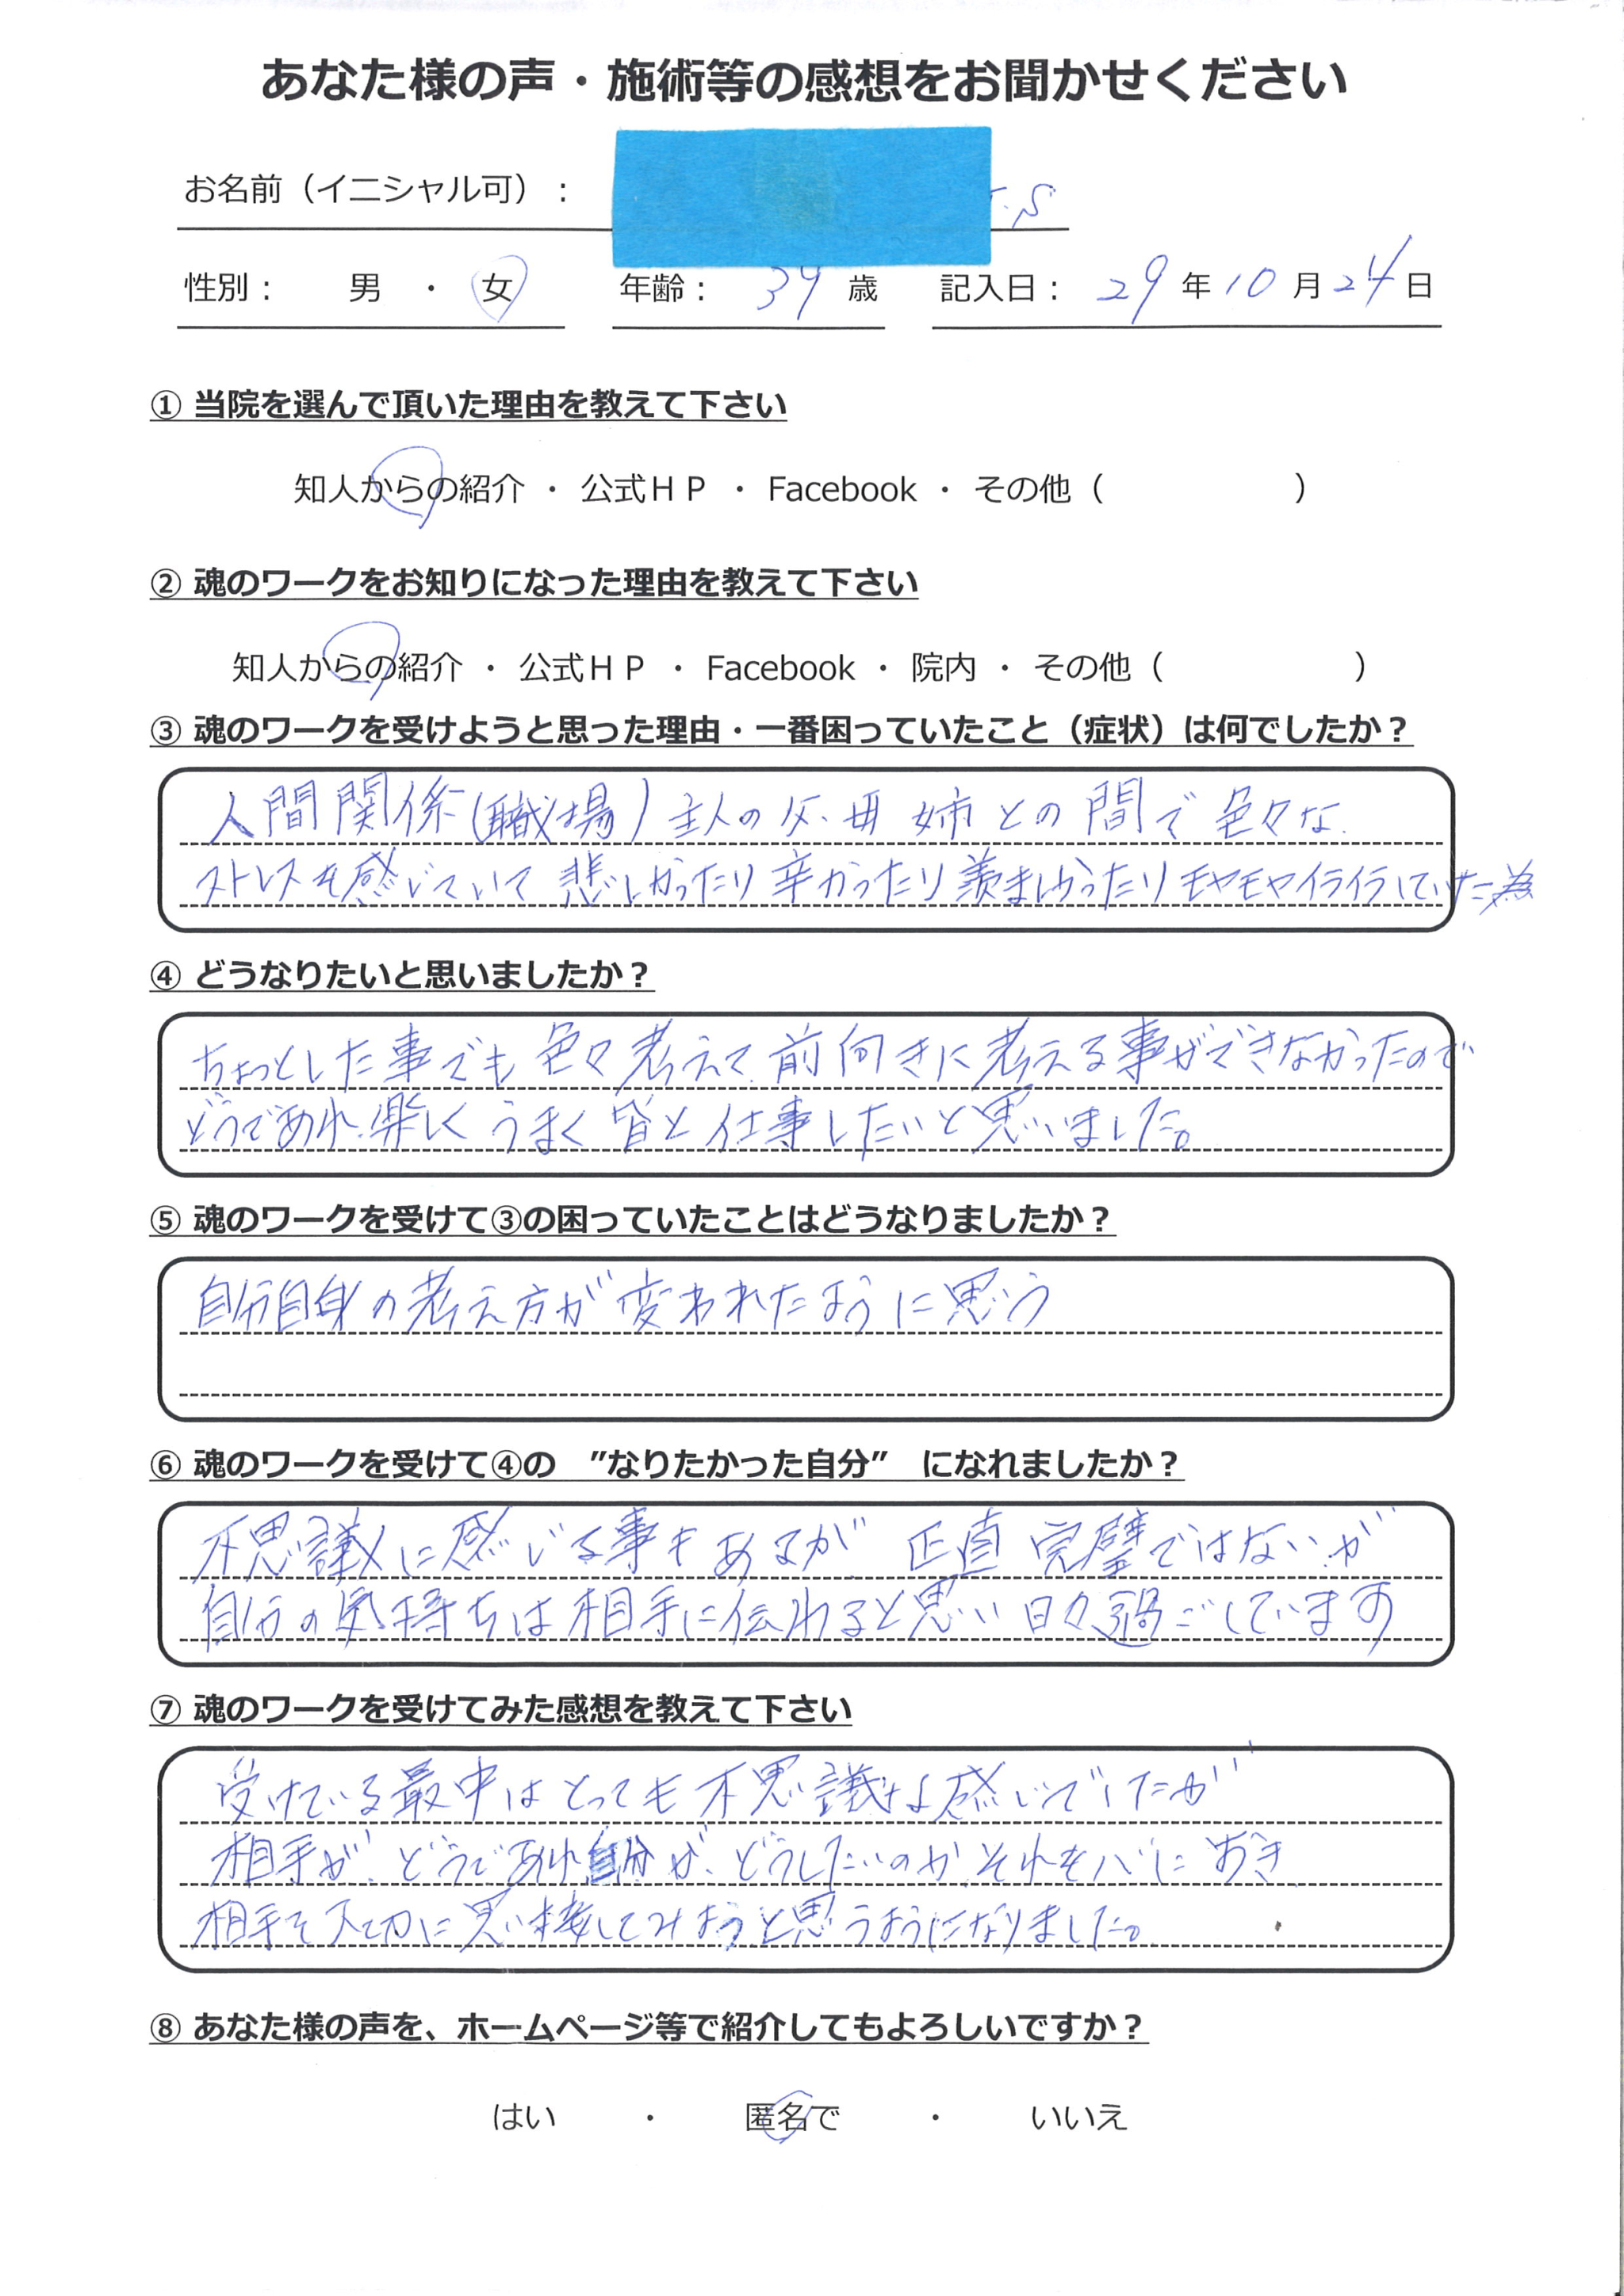 あなた様の声・施術等の感想をお聞かせください
お名前（イニシャル可）： .S
性別： 男 ・ 女 年齢： 39 歳 記入日： 29 年 10 月 24 日
① 当院を選んで頂いた理由を教えて下さい
知人からの紹介 ・ 公式ＨＰ ・ Facebook ・ その他（ ）
② 魂のワークをお知りになった理由を教えて下さい
知人からの紹介 ・ 公式ＨＰ ・ Facebook ・ 院内 ・ その他（ ）
③ 魂のワークを受けようと思った理由・一番困っていたこと（症状）は何でしたか？
人間関係(職場) 主人の父、母 姉との間で色々な
ストレスを感じていて 悲しかったり 辛かったり 羨ましかったり モヤモヤイライラしていた為
④ どうなりたいと思いましたか？
ちょっとした事でも 色々考えて、前向きに考える事ができなかったので
どうであれ、楽しく うまく 皆と仕事したいと思いました。
⑤ 魂のワークを受けて③の困っていたことはどうなりましたか？
自分自身の考え方が変われたように思う
⑥ 魂のワークを受けて④の ”なりたかった自分” になれましたか？
不思議に感じる事もあるが 正直 完璧ではないが
自分の気持ちは相手に伝わると思い 日々過ごしています
⑦ 魂のワークを受けてみた感想を教えて下さい
受けている最中はとっても不思議な感じでしたが
相手が、どうであれ自分が、どうしたいのか それを心におき
相手を大切に思い接してみようと思うようになりました。
⑧ あなた様の声を、ホームページ等で紹介してもよろしいですか？
はい ・ 匿名で ・ いいえ